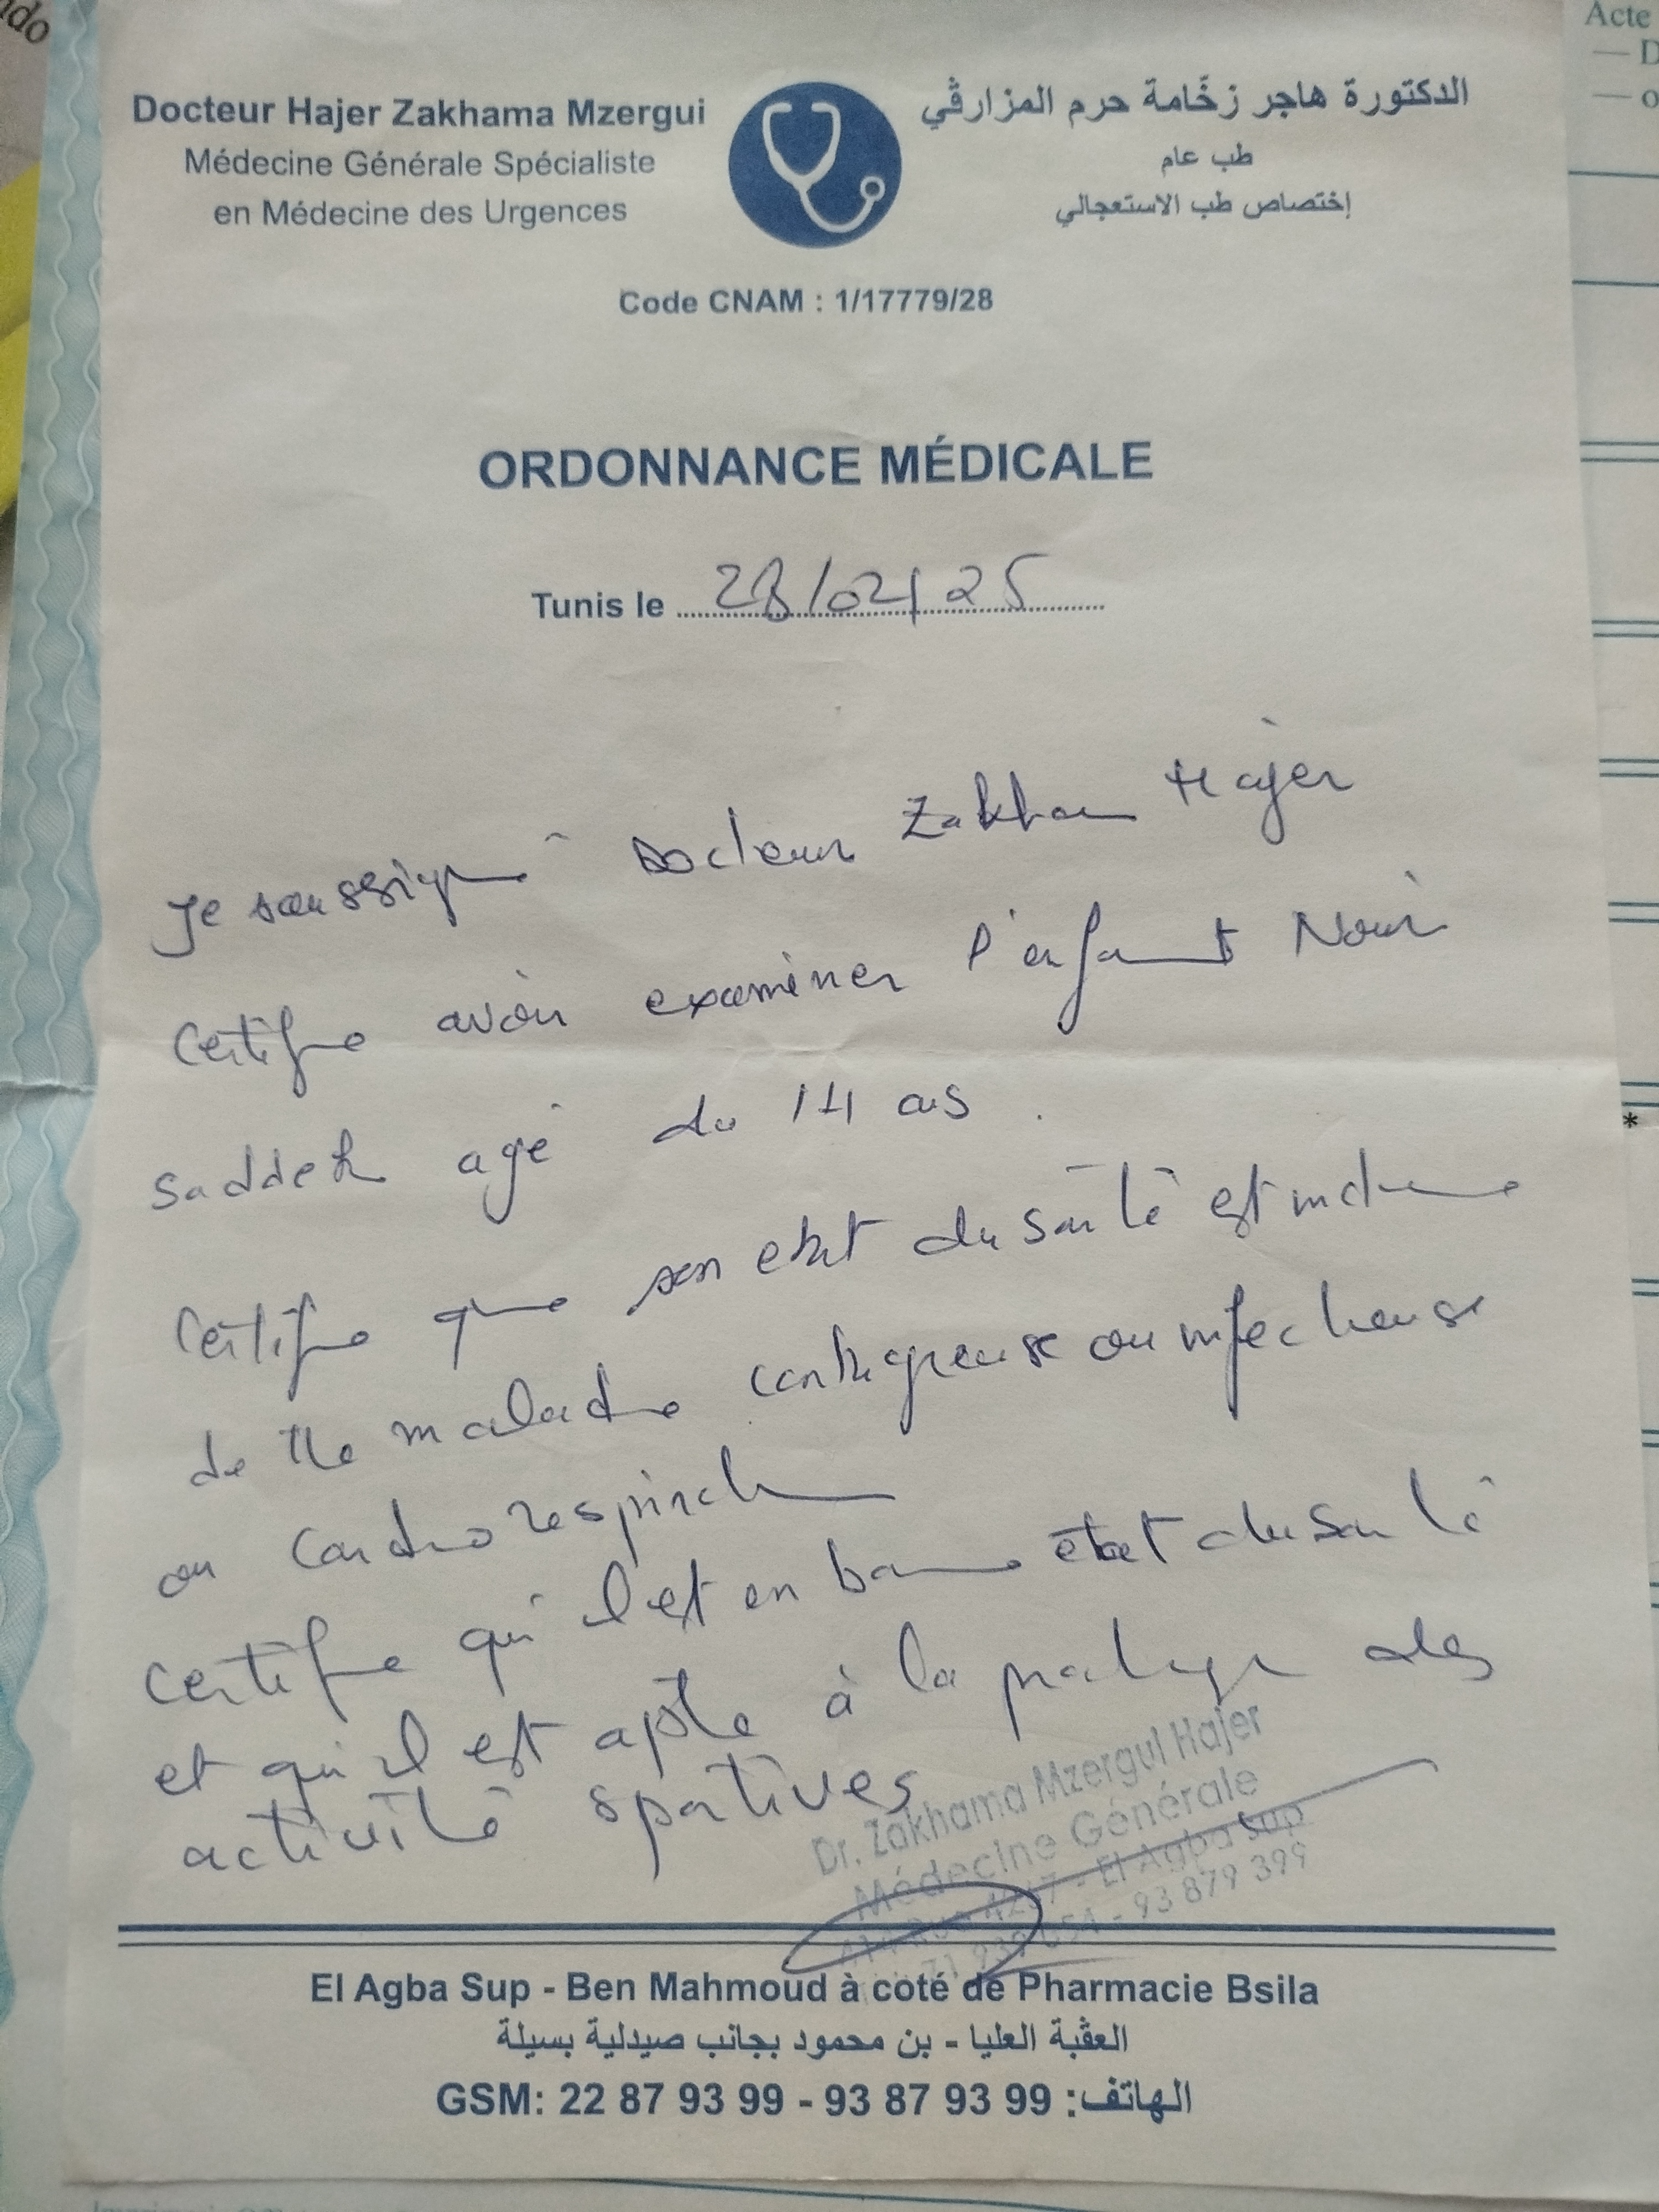 Docteur Hajer Zakhama Mzergui
Médecine Générale Spécialiste
en Médecine des Urgences
الدكتورة هاجر زخّامة حرم المزارڤي
طب عام
إختصاص طب الاستعجالي
Code CNAM : 1/17779/28
ORDONNANCE MÉDICALE
Tunis le 28/02/25
Je soussigné Docteur Zakham Hajer
Certifie avoir examiner l'enfant Nour
saddek agé de 14 ans .
Certifie que son etat de santé est indemne
de tte maladie contagieuse ou infectieuse
ou cardio respirat
certifie qu'il est en bonne état de santé
et qu'il est apte à la pratique des
activité sportives
Dr. Zakhama Mzergui Hajer
Médecine Générale
4267 - El Agba Sup
71 939 054 - 93 879 399
El Agba Sup - Ben Mahmoud à coté de Pharmacie Bsila
العڤبة العليا - بن محمود بجانب صيدلية بسيلة
GSM: 22 87 93 99 - 93 87 93 99 :الهاتف
Acte
*